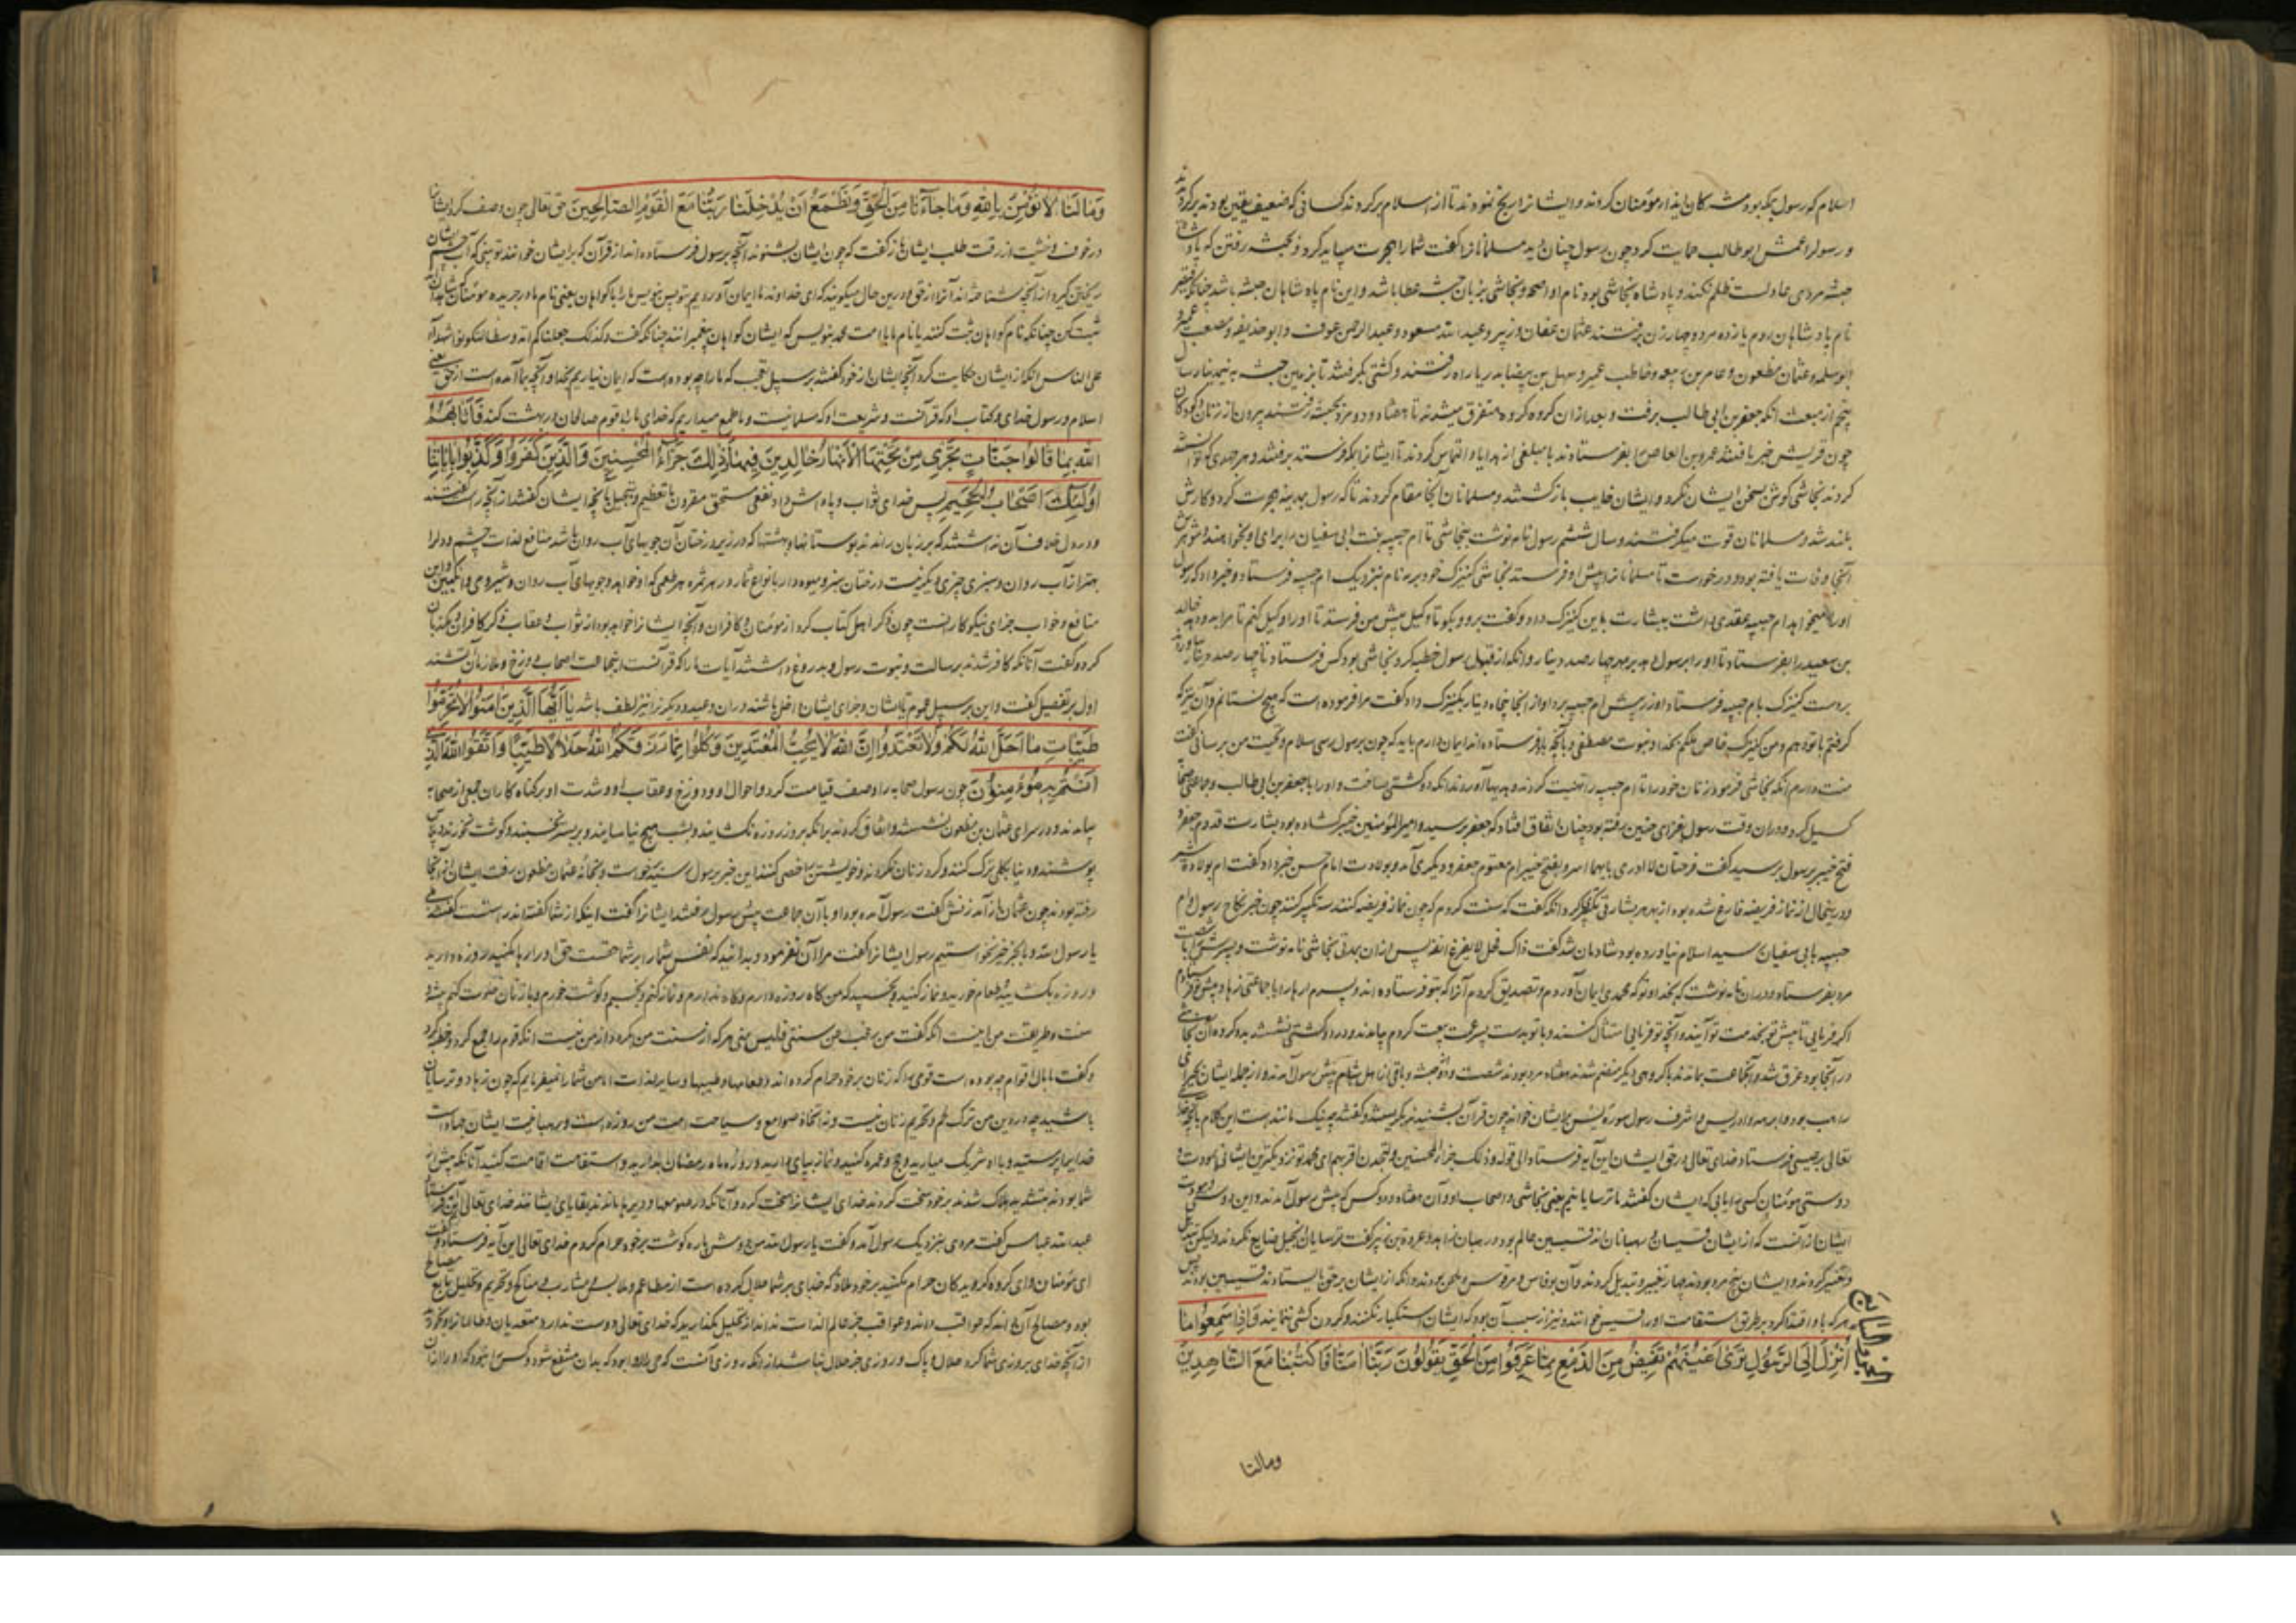 اسلام که رسول بمکه بود مشرکان ایذاء مؤمنان کردند و ایشانرا رنج نمودند تا از اسلام برکردند کسانی که ضعیف یقین بودند
و رسولرا عمش ابو طالب حمایت کرد چون رسول چنان دید مسلمانانرا کفت شما را هجرت میباید کرد و بحبشه رفتن که پادشاه
حبشه مردی عادلست ظلم نکند و پادشاه نجاشی بود نام او اصحمه و نجاشی بزبان حبشه عطا باشد و این نام پادشاهان حبشه باشد چنانکه قیصر
نام پادشاهان روم یازده مرد و چهار زن برفتند عثمان عفان و زبیر و عبدالله مسعود و عبدالرحمن عوف و ابو حذیفه و مصعب عمیر
ابو سلمه و عثمان مظعون و عامر بن ربیعه و حاطب عمرو سهل بن بیضا بدریا راه رفتند و کشتی بکرفتند تا بزمین حبشه
پنجم از مبعث آنکه جعفر بن ابی طالب برفت و بعد ازان کروه کروه متفرق میشدند تا هشتاد و دو مرد بحبشه رفتند بیرون از زنان و کودکان
چون قریش خبر یافتند عمرو بن العاص را بفرستادند با مبلغی از هدایا و التماس کردند تا ایشانرا بمکه فرستد برفتند و هر جهدی که توانستند
کردند نجاشی کوش بسخن ایشان نکرد و ایشان خایب بازکشتند و مسلمانان آنجا مقام کردند تا که رسول بمدینه هجرت کرد و کارش
بلند شد و مسلمانان قوت میکرفتند و سال ششم رسول نامه نوشت بنجاشی تا ام حبیبه بنت ابی سفیان را برای او بخواهد و شوهرش
آنجا وفات یافته بود و درخواست تا مسلمانانرا پیش او فرستد نجاشی کنیزک خود برهه نام بنزدیک ام حبیبه فرستاد و خبر داد که رسول
او را میخواهد ام حبیبه عقدی داشت ببشارت باین کنیزک داد و کفت برو و بکو تا وکیل پیش من فرستد تا او را وکیل کنم تا مرا بدو دهد خالد
بن سعید را بفرستاد تا او را برسول دهد بر مهر چهارصد دینار و آنکه از قبل رسول خطبه کرد نجاشی بود کس فرستاد تا چهارصد دینار بیاورد
بدست کنیزک بام حبیبه فرستاد او زر پیش ام حبیبه برد او از انجا پنجاه دینار بکنیزک داد کفت مرا فرموده است که هیچ نستانم و آن نیز که
کرفتم باتو دهم و من کنیزک خاص ملکم بخدا و نبوت مصطفی و بآنچه باو فرستاده اند ایمان دارم باید که چون برسول رسی سلام و تحیت من برسانی کفت
منت دارم آنکه نجاشی فرمود زنان خود را تا ام حبیبه را تهنیت کردند و هدیها آوردند آنکه دو کشتی بساخت و او را با جعفر بن ابی طالب و جماعتی صحابه
کسیل کرد و دران وقت رسول بغزای حنین رفته بود چنان اتفاق افتاد که جعفر برسید و امیر المؤمنین خیبر کشاده بود بشارت قدوم جعفر و
فتح خیبر برسول برسید کفت فرحتان لا ادری بایهما اسر بفتح خیبر ام بقدوم جعفر و دیکری آمد و بولادت امام حسن خبر داد کفت ام بولادة شبر
و درینحال از نماز فریضه فارغ شده بود از بهر هر بشارتی تکبیر کرد آنکه کفت که سنت کردم که چون نماز فریضه کنند سه تکبیر کنند چون خبر نکاح رسول و ام
حبیبه بابی سفیان رسید اسلام نیاورده بود شادمان شد کفت ذاک فحل لا یقرع انفه پس ازان بمدتی نجاشی نامه نوشت و پسرش را با شصت
مرد بفرستاد و دران نامه نوشت که بخدا و تو که محمدی ایمان آوردم و تصدیق کردم آنرا که بتو فرستاده اند و پسرم ارها را با جماعتی زهاد پیش تو فرستادم
اکر فرمایی تا پیش تو بخدمت تو آیند و آنچه تو فرمایی امتثال کنند و باتو بدست پسر عمت بیعت کردم بیامدند و در دو کشتی نشستند
در آنجا بود غرق شد و آنجماعت بماندند با کروهی دیکر منضم شدند هفتاد مرد بودند شصت و دو از حبشه و باقی از اهل شام پیش رسول آمدند و از جمله ایشان بحیرای
راهب بود و ابرهه و ادریس و اشرف رسول سورة یس بر ایشان خواند چون قرآن بشنیدند بکریستند و کفتند چه نیک مانندست این کلام بآنچه خدای
تعالی بر عیسی فرستاد خدای تعالی در حق ایشان این آیه فرستاد الی قوله و ذلک جزاء المحسنین و لتجدن اقربهم ای محمد تو نزدیکترین ایشانی بمودت و
دوستی مؤمنان کسی را یابی که ایشان کفتند ما ترسایانیم یعنی نجاشی و اصحاب او و آن هفتاد و دو کس که پیش رسول آمدند و این دوستی و مودت
ایشان از آنست که از ایشان قسیسان و رهبانان اند قسیسین عالم بود و رهبان زاهد و عروة بن زبیر کفت ترسایان انجیل ضایع نکردند ولیکن تبدیل
و تغییر کردند و ایشان پنج مرد بودند چهار تغییر و تبدیل کردند و آنکه از ایشان بر حق بایستادند قسیسین بودند پس
هر که باو اقتدا کرد بر طریق استقامت او را قسیس خوانند و نیز از سبب آن بود که ایشان استکبار نکنند و کردن کشی ننمایند وَاِذَا سَمِعُوا مَا
اُنْزِلَ اِلَی الرَّسُولِ تَرٰی اَعْیُنَهُمْ تَفِیضُ مِنَ الدَّمْعِ مِمَّا عَرَفُوا مِنَ الْحَقِّ یَقُولُونَ رَبَّنَا اٰمَنَّا فَاکْتُبْنَا مَعَ الشَّاهِدِینَ
ومالنا
وَمَا لَنَا لَا نُؤْمِنُ بِاللّٰهِ وَمَا جَآءَنَا مِنَ الْحَقِّ وَنَطْمَعُ اَنْ یُدْخِلَنَا رَبُّنَا مَعَ الْقَوْمِ الصَّالِحِینَ حق تعالی چون وصف کرد ایشانرا
در خوف و خشیت از رقت طلب ایشان باز کفت که چون ایشان بشنوند آنچه برسول فرستاده اند از قرآن که بر ایشان خوانند تو بینی که آب چشم ایشان
ریختن کیرد از آنچه بشناخته اند آنرا از حق و درین حال میکویند که ای خداوند ما ایمان آوردیم تو پس بنویس ما را با کواهان یعنی نام ما در جریده مؤمنان
ثبت کن چنانکه نام کواهان ثبت کنند یا نام ما با امت محمد بنویس که ایشان کواهان پیغمبرانند چنانکه کفت و کذلک جعلناکم امة وسطا لتکونوا شهداء
علی الناس آنکه از ایشان حکایت کرد آنچه ایشان از خود کفتند بر سبیل تعجب که ما را چه بوده است که ایمان نیاریم بخدا و آنچه بما آمده است از حق یعنی
اسلام و رسول خدای و کتاب او که قرآنست و شریعت او که مسلمانیست و ما طمع میداریم که خدای ما را با قوم صالحان در بهشت کند فَاَثَابَهُمُ
اللّٰهُ بِمَا قَالُوا جَنَّاتٍ تَجْرِی مِنْ تَحْتِهَا الْاَنْهَارُ خَالِدِینَ فِیهَا وَذٰلِکَ جَزَآءُ الْمُحْسِنِینَ وَالَّذِینَ کَفَرُوا وَکَذَّبُوا بِاٰیَاتِنَا
اُولٰئِکَ اَصْحَابُ الْجَحِیمِ پس خدای ثواب و پاداش داد نفعی مستحق مقرون با تعظیم و تبجیل بآنچه ایشان کفتند از آنچه راست کفتند
و در دل خلاف آن نداشتند که بر زبان راندند بوستانها و بهشتها که در زیر درختان آن جویهای آب روان باشد منافع لذات چشم و دل را
بهتر از آب روان و سبزی چیزی دیکر نیست درختان سبز و میوه دار با انواع ثمار و در هر ثمره هر طعمی که او خواهد و جویهای آب روان و شیر و می و انکبین و این
منافع و خواب جزای نیکوکارانست چون ذکر اهل کتاب کرد از مؤمنان و کافران و آنچه ایشانرا خواهد بود از ثواب و عقاب ذکر کافران و مکذبان
کرد و کفت آنانکه کافر شدند برسالت و نبوت رسول و بدروغ داشتند آیات ما را که قرآنست اینجماعت اصحاب دوزخ و ملازمان آتشند
اول بر تفصیل کفت و این بر سبیل عموم تا ایشان و جز ای ایشان داخل باشند دران وعید و دیکرانرا نیز لطف باشد یَا اَیُّهَا الَّذِینَ اٰمَنُوا لَا تُحَرِّمُوا
طَیِّبَاتِ مَا اَحَلَّ اللّٰهُ لَکُمْ وَلَا تَعْتَدُوا اِنَّ اللّٰهَ لَا یُحِبُّ الْمُعْتَدِینَ وَکُلُوا مِمَّا رَزَقَکُمُ اللّٰهُ حَلَالًا طَیِّبًا وَاتَّقُوا اللّٰهَ الَّذِی
اَنْتُمْ بِهِ مُؤْمِنُونَ چون رسول صحابه را وصف قیامت کرد و احوال او و دوزخ و عقاب او و شدت او بر کناه کاران جمعی از صحابه
بیامدند و در سرای عثمان بن مظعون نشستند و اتفاق کردند برانکه بروز روزه نکشایند و بشب هیچ نیاسایند و بر بستر نخسبند و کوشت نخورند و پلاس
پوشند و دنیا بکلی ترک کنند و کرد زنان نکردند و خویشتن را خصی کنند این خبر برسول رسید برخواست و بخانه عثمان مظعون رفت ایشان از آنجا
رفته بودند چون عثمان باز آمد زنش کفت رسول آمده بود او با آن جماعت پیش رسول رفتند ایشانرا کفت اینکه از شما کفته اند راستست کفتند بلی
یا رسول الله و ما بجز خیر نخواستیم رسول ایشانرا کفت مرا آن نفرمود و بدانید که نفس شما را بر شما حقست حق او را رها مکنید روزه دارید
و روزه بکشایید و طعام خورید و نماز کنید و بخسبید که من کاه روزه دارم و کاه ندارم و نماز کنم و بخسبم و کوشت خورم و با زنان خلوت کنم
سنت و طریقت من اینست آنکه کفت من رغب عن سنتی فلیس منی هر که از سنت من بکردد از من نیست آنکه قوم را جمع کرد و خطبه کرد
و کفت ما بال اقوام چه بوده است قومی را که زنان بر خود حرام کرده اند و طعامها و طیبها و سایر لذات اما من شما را نمیفرمایم که چون زهاد و ترسایان
باشید چه در دین من ترک لحم و تحریم زنان نیست و نه اتخاذ صوامع و سیاحت امت من روزه است و رهبانیت ایشان جهادست
خدایرا پرستید و با او شریک میارید و حج و عمره کنید و نماز بپای دارید و روزه ماه رمضان بدارید و استقامت اقامت کنید آنانکه پیش از
شما بودند بتشدید هلاک شدند بر خود سخت کردند خدای ایشانرا سخت کرد و آنانکه در صومعها و دیرها ماندند بقایای ایشانند خدای تعالی این آیه فرستاد
عبدالله عباس کفت مردی بنزدیک رسول آمد و کفت یا رسول الله من دوش باره کوشت بر خود حرام کردم خدای تعالی این آیه فرستاد و کفت
ای مؤمنان و ای کروه کرویدکان حرام مکنید بر خود حلالی که خدای بر شما حلال کرده است از مطاعم و ملابس و مشارب و مناکح و تحریم و تحلیل تابع مصالح
بود و مصالح آن داند که عواقب داند و عواقب جز عالم الذات نداند از تحلیل بکذرید که خدای تعالی دوست ندارد متعدیان و ظالمانرا و بخورید
از آنچه خدای بروزی شما کرد حلال و پاک و روزی جز حلال نباشد از انکه روزی آنست که حی را لابد بود که بدان منتفع شود و کس را نبود که او را ازان